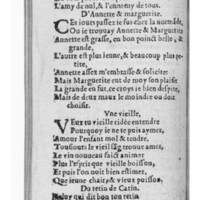 L'amy de nul, & l'ennemy de tous.
D'Annette & marguerite.
Ces iours passez ie fus chez la
Ou ie trouuay Annette & Marguerite
Annette est grasse, en bon poinct belle, &
grande,
L'autre est plus ieune, & beaucoup plus petite,
Annette assez m'embrasse & solicite:
Mais Marguerite eut de moy son plaisir
La grande en fut, ce croy ie bien despite,
Mais de deux maux le moindre ou doit
choisir.
Une vieille,
Veux tu vieille ridée entendre
Pourquoy ie ne te puis aymer,
Amour l'enfant mol & tendre,
Tousiours le vieil sang trouue amer,
Le vin nouueau fait animer
Plus l'esprit, que vieille boisson,
Et puis l'on n'oit bien estimer,
Que ieune chair, & vieux poisson.
Du tetin de Catin.
qui dit bon tetin